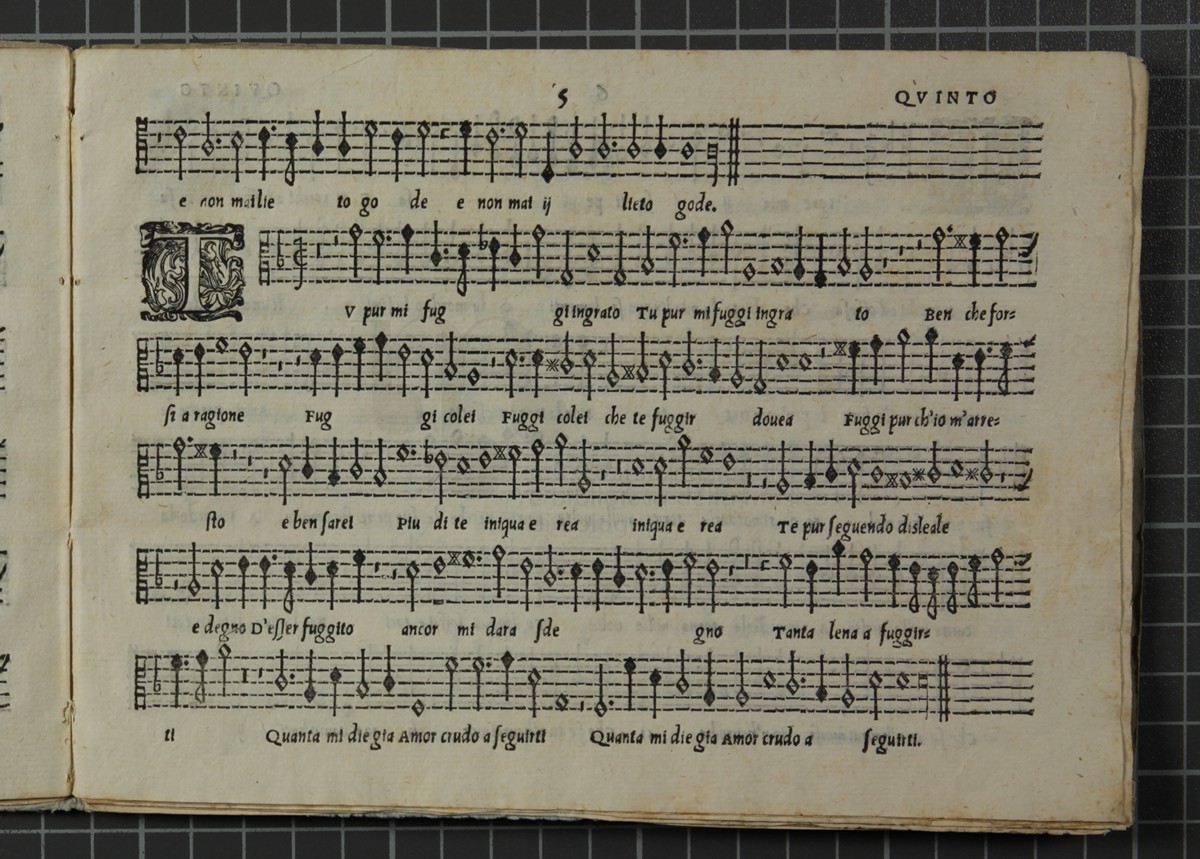 5 QVINTO
e non mai lie to go de e non mai ij lieto gode.
TV pur mi fug gi ingrato Tu pur mi fuggi ingra to Ben che for=
si a ragione Fug gi colei Fuggi colei che te fuggir douea Fuggi pur ch'io m'arre=
sto e ben sarei Piu di te iniqua e rea iniqua e rea Te pur seguendo disleale
e degno D'esser fuggito ancor mi dara sde gno Tanta lena a fuggir=
ti Quanta mi die gia Amor crudo a seguirti Quanta mi die gia Amor crudo a seguirti.